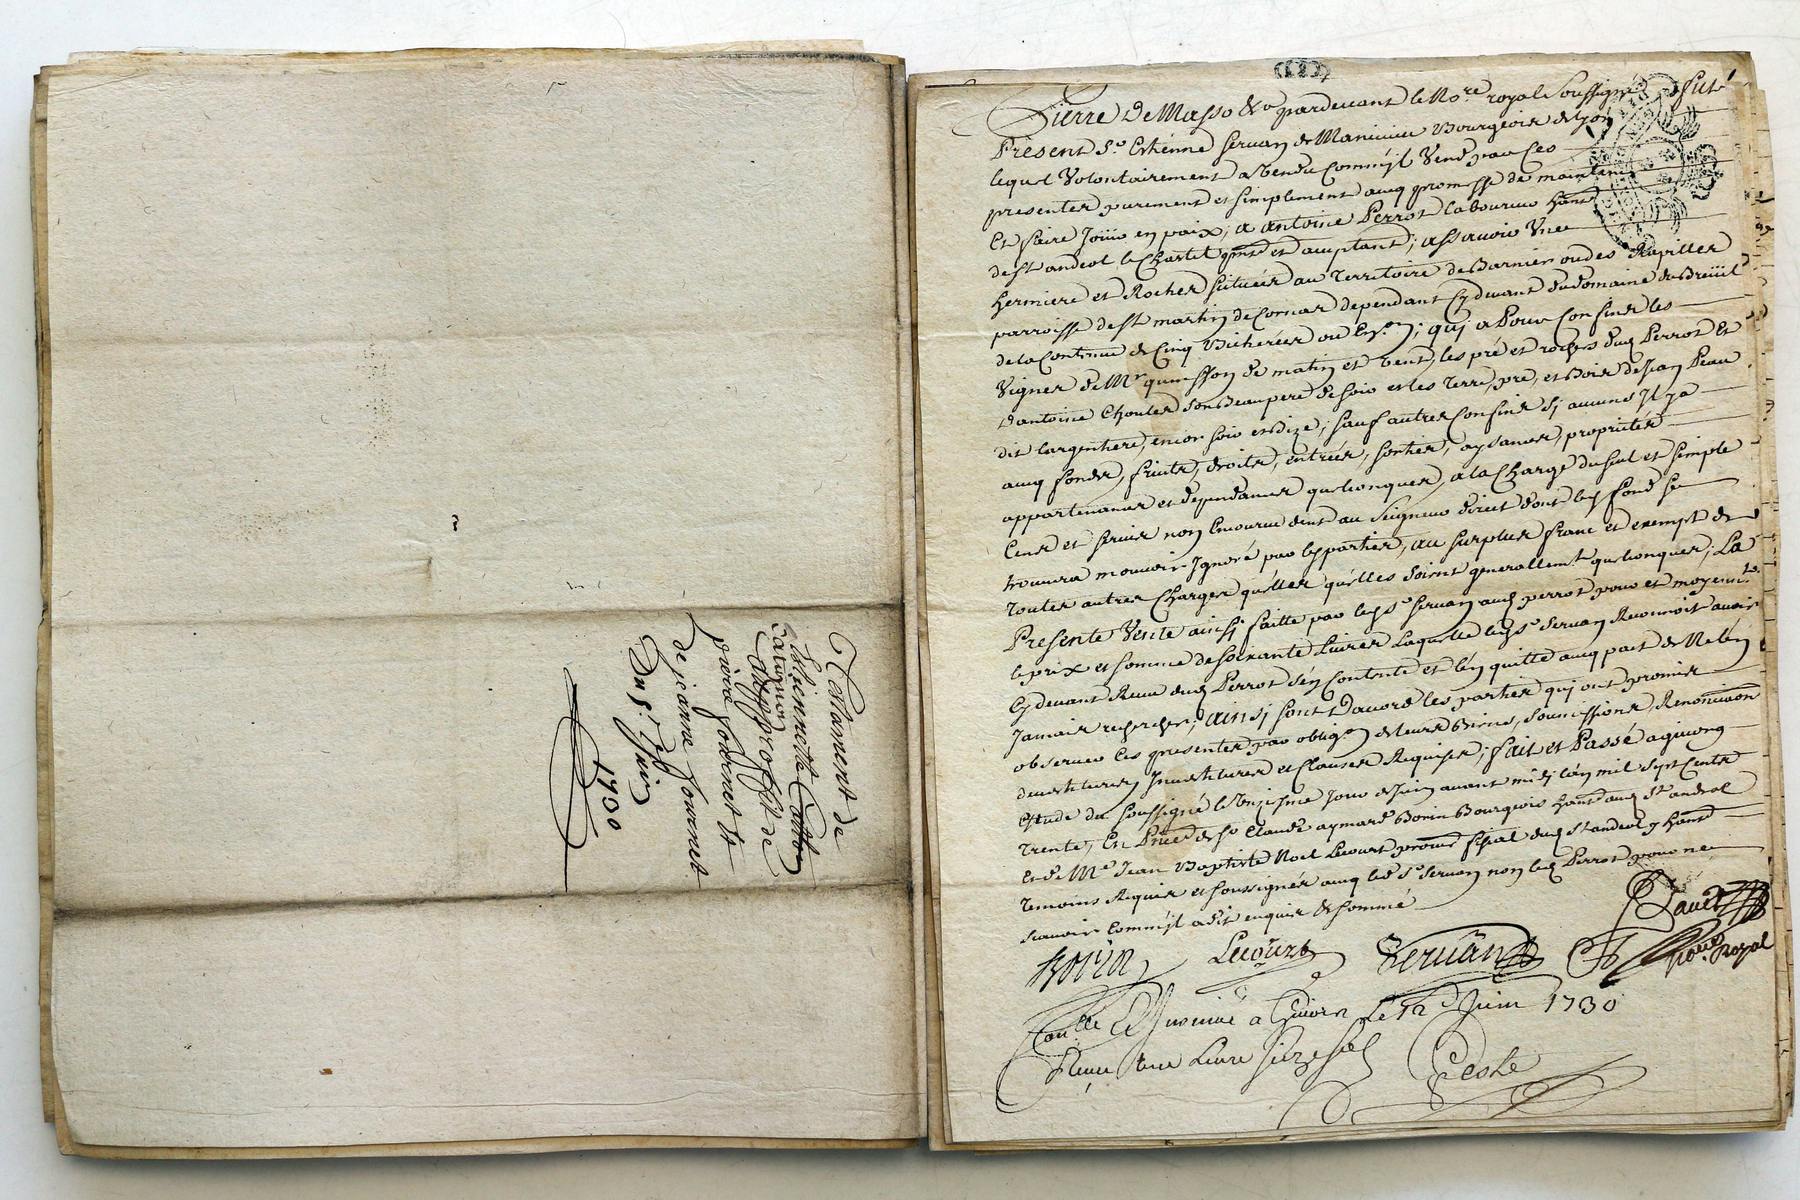 Testament de
Estiennette Cotton
au proffit de
pierre fournet et
de jeanne fournet
Du 5e Juin
1730
Pierre De Masso &a pardevant le No.re royal soussigné fut
Present Sr Estienne Servan de Manicieu Bourgeois de Lyon
lequel Volontairement a Vendu comm'jl Vend par Ces
presentes purement et simplement avec promesse de maintenir
Et faire Jouir en paix, a antoine Perrot laboureur habt
de st andeol le Chastel pnt et acceptant, assavoir Une
hermiere et Rocher situées au Territoire de Barnier ou des Grapilles
parroisse de st martin de Cornas dependant cydevant du domaine du Breüil
de la Contenue de Cinq Bicherées ou En.on; quj a Pour Confins les
Vignes de Mr quinsson de matin et vent, les pré et rochers dud Perrot Et
D'antoine Choules son beaupere de soir et les Terre, pré, et Bois de Jean Peau
dit Largentiere, encor soir et Bize, sauf autres Confins sj aucuns Jl y a
avec fonds, fruits, droits, entrées, sorties, aysances, proprietés
appartenances et dependances quelconques, a la Charge du seul et simple
Cens et servis non Encourus deus au Seigneur direct dont led fond se
trouvera mouvoir Ignoré par les parties, au surplus franc et exempt de
toutes autres Charges qu'elles qu'elles soient generallemt quelconques, La
Presente Vente ainsj faitte par led sr Servan aud perrot pour et moyennt
le prix et somme de soixante Livres Laquelle led sr Servan Reconnoit avoir
Cydevant Receu dud Perrot s'en Contente et l'en quitte avec pact de Ne l'en
Jamais rechercher, ainsj sont D'accord les parties quj ont promis
observer Ces presentes par oblig.on de leurs Biens, soumissions, Renonciaon
devestitures Jnvestitures et Clauses Requises, fait et Passé a givors
Estude du soussigné le onzieme Jour de Juin avant midj l'an mil sept Cents
Trente, En Pnce de Sr Claude aymard Bonin Bourgeois habt aud St andeol
et de Me Jean Baptiste Noel Lecourt procur fiscal dud st andeol y habt
temoins Requis et soussignés avec led sr Servan non led Perrot pour ne
scavoir comm'jl a dit enquis & sommé
Bonin Lecourt Servan
No.re Royal
Con.llé Et Jnsinué a Givors Le 12e Juin 1730
Receu une Livre seize sols